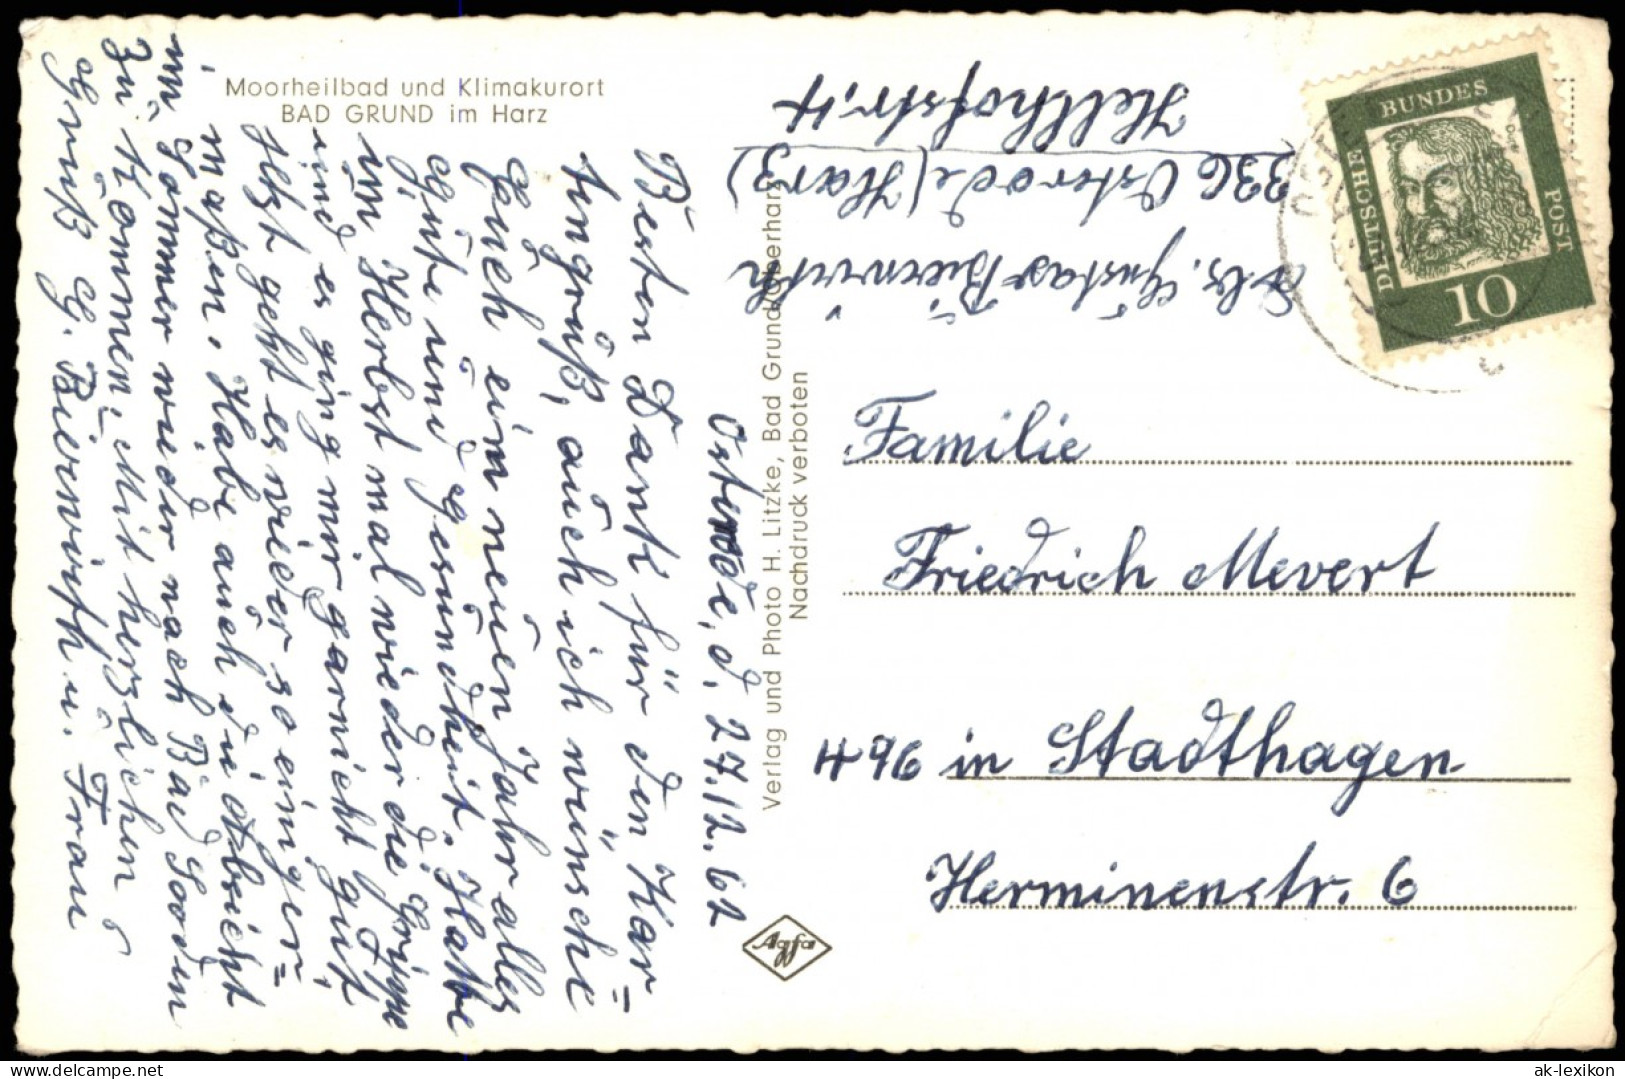 Moorheilbad und Klimakurort
BAD GRUND im Harz
Osterode, d. 27.12.62
Besten Dank für den Kar=
tengruß, auch ich wünsche
Euch ein neuen Jahr alles
Gute und Gesundheit. Hatte
im Herbst mal wieder die Grippe
und es ging mir garnicht gut,
Jetzt geht es wieder so einiger=
maßen. Habe auch die Absicht
im Sommer wieder nach Bad Sooden
zu kommen. Mit herzlichen
Gruß G. Bierwirth u. Frau
Verlag und Photo H. Litzke, Bad Grund/Oberharz
Nachdruck verboten
Agfa
Abs. Gustav Bierwirth
336 Osterode (Harz)
Hellhofstr. 4
DEUTSCHE
BUNDES
POST
10
Familie
Friedrich Mevert
496 in Stadthagen
Herminenstr. 6
ak-ansichtskarten.de
ak-lexikon